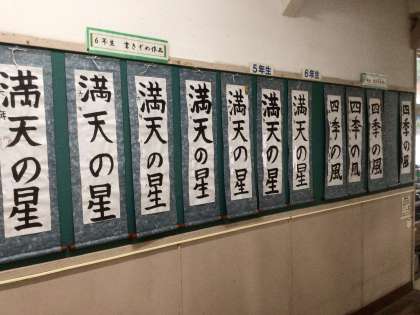 6年生 書きぞめ作品
5年生
6年生
満天の星
満天の星
満天の星
満天の星
満天の星
満天の星
満天の星
四季の風
四季の風
四季の風
四季の風